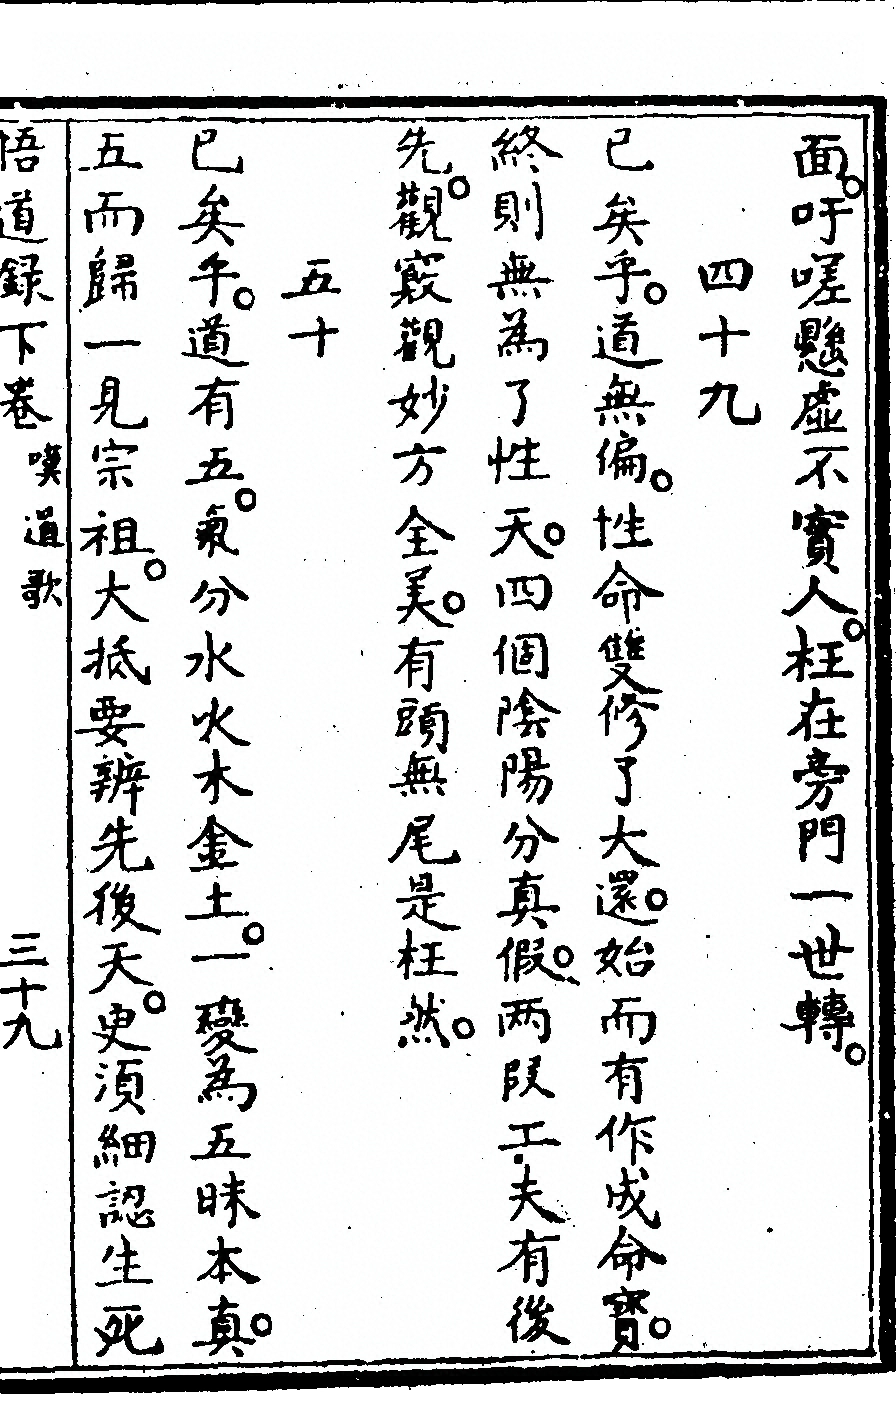 面。吁嗟懸虛不實人。枉在旁門一世轉。
四十九
已矣乎。道無偏。性命雙修了大還。始而有作成命寶。
終則無為了性天。四個陰陽分真假。两段工夫有後
先。觀竅觀妙方全美。有頭無尾是枉然。
五十
已矣乎。道有五。氣分水火木金土。一變為五昧本真。
五而歸一見宗祖。大抵要辨先後天。更須細認生死
悟道録下卷 嘆道歌 三十九